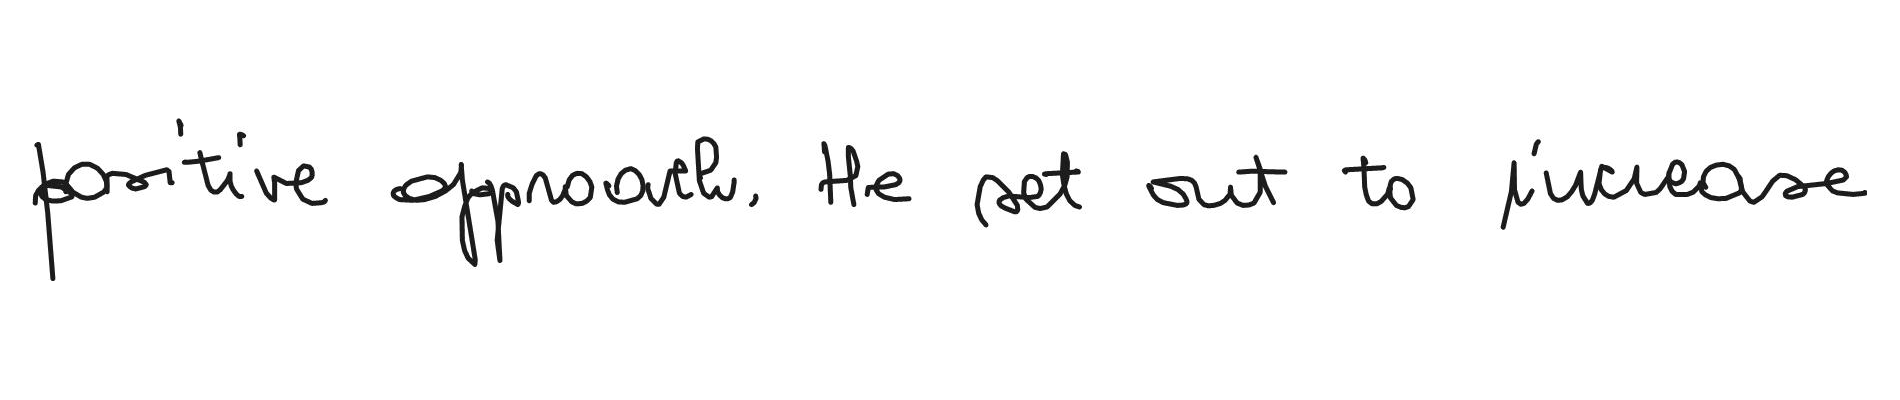 positive approach. He set out to increase